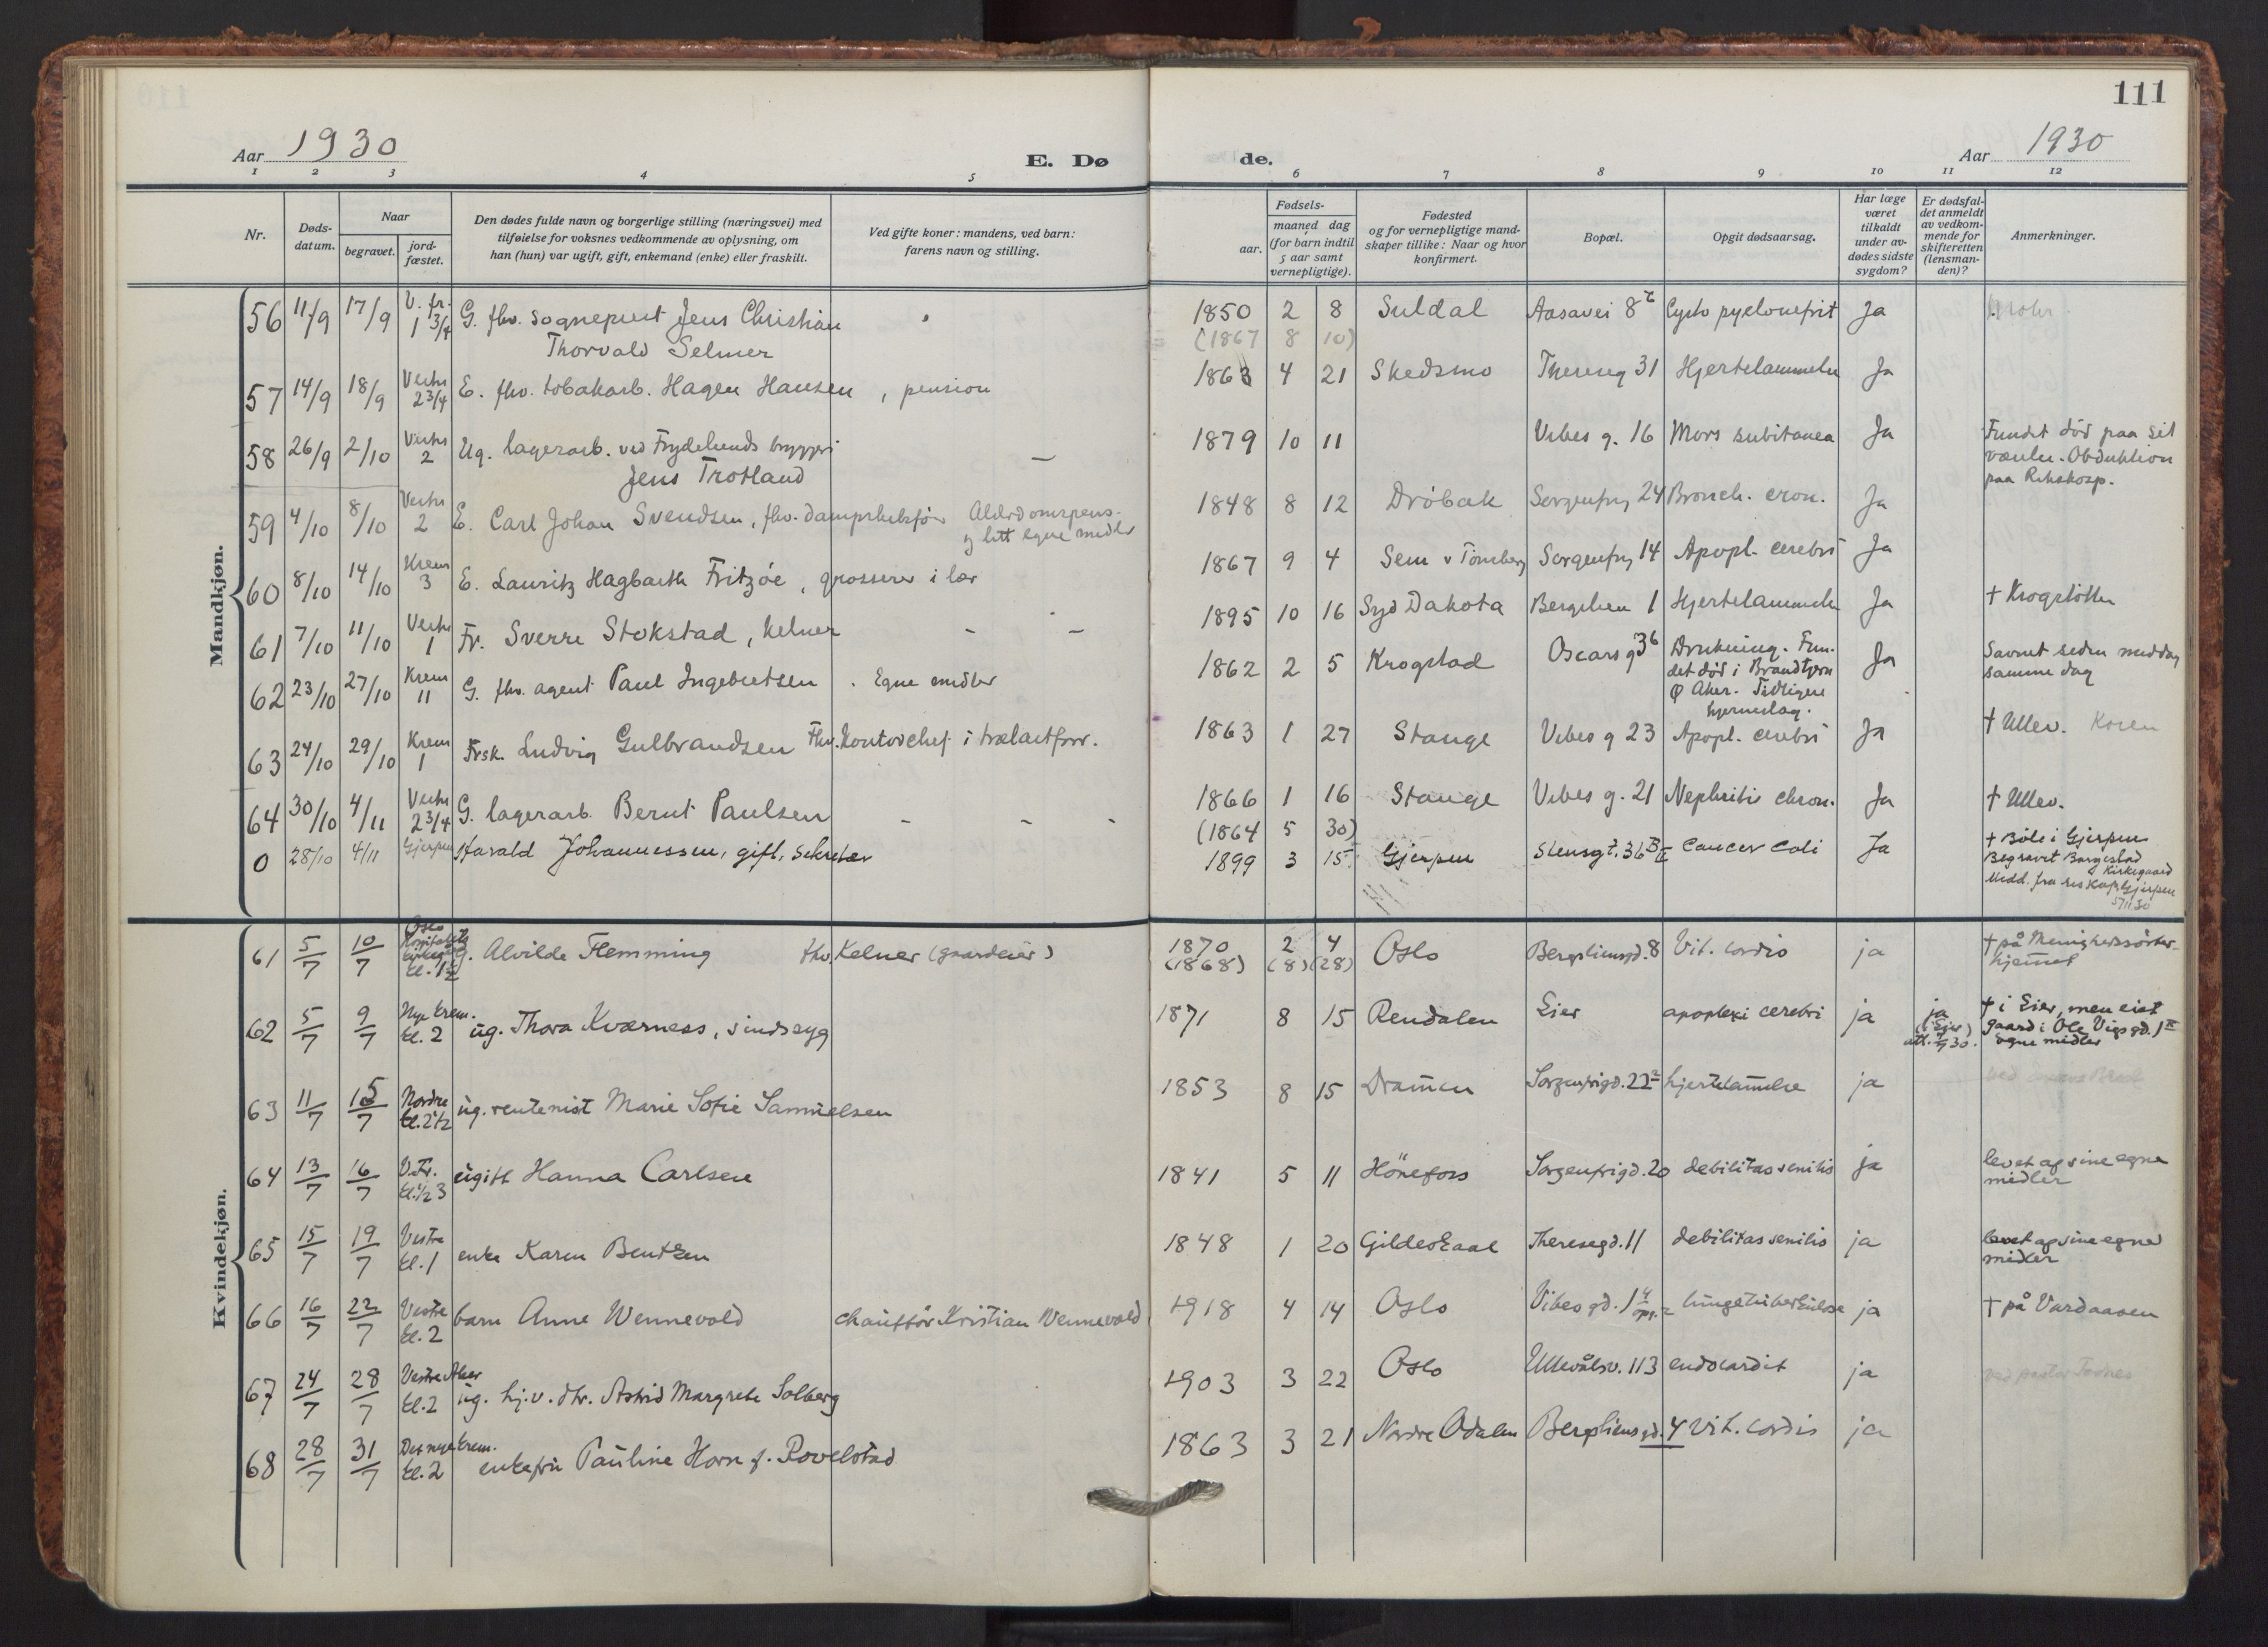 111
Aar 1930 E. Dø de. Aar 1930
1 2 3 4 5 6 7 8 9 10 11 12
Nr.
Døds-
datum.
Naar
begravet.
jord-
fæstet.
Den dødes fulde navn og borgerlige stilling (næringsvei) med
tilføielse for voksnes vedkommende av oplysning, om
han (hun) var ugift, gift, enkemand (enke) eller fraskilt.
Ved gifte koner: mandens, ved barn:
farens navn og stilling.
Fødsels-
aar.
maaned dag
(for barn indtil
5 aar samt
vernepligtige).
Fødested
og for vernepligtige mand-
skaper tillike: Naar og hvor
konfirmert.
Bopæl.
Opgit dødsaarsag.
Har læge
været
tilkaldt
under av-
dødes sidste
sygdom?
Er dødsfal-
det anmeldt
av vedkom-
mende for
skifteretten
(lensman-
den)?
Anmerkninger.
Mandkjøn.
56 11/9 17/9 V. fr. 1 3/4 G. fhv. sogneprest Jens Christian
Thorvald Selmer
1850 2 8 Suldal Aasavei 8 Cysto pyelonefrit Ja
(1867 8 10)
57 14/9 18/9 Vestre 2 3/4 E. fhv. tobakarb. Hagen Hansen, pension
1863 4 21 Skedsmo Thereseg 31 Hjertelammelse Ja
58 26/9 2/10 Vestre 2 Ug. lagerarb. ved Frydenlunds bryggeri
Jens Trotland —
1879 10 11 Vibes g. 16 Mors subitanea Ja Fundet død paa sit
værelse. Obduktion
paa Rikshosp.
59 4/10 8/10 Vestre 2 E. Carl Johan Svendsen, fhv. dampskibsfører Alderdomspens.
og litt egne midler
1848 8 12 Drøbak Sorgenfrig 24 Bronch. cron. Ja
60 8/10 14/10 Krem 3 E. Lauritz Hagbarth Fritzøe, grosserer i lær
1867 9 4 Sem v Tønsberg Sorgenfrig 14 Apopl. cerebri Ja
61 7/10 11/10 Vestre 1 Fr. Sverre Stokstad, kelner — —
1895 10 16 Syd Dakota Bergslien 1 Hjertelammelse Ja † Krogsløtten
62 23/10 27/10 Krem 11 G. fhv. agent Paul Ingebretsen. Egne midler
1862 2 5 Krogstad Oscarsg 36 Drukning. Fun-
det død i Brandtjern
Ø Aker. Tidligere
hjerneslag.
Ja Savnet siden middag
samme dag
63 24/10 29/10 Krem 1 Frsk. Ludvig Gulbrandsen Fhv. kontorchef i trælastforr.
1863 1 27 Stange Vibes g 23 Apopl. cerebri Ja † Ullev. Koren
64 30/10 4/11 Vestre 2 3/4 G. lagerarb. Bernt Paulsen — — -
1866 1 16 Stange Vibes g. 21 Nephritis chron. Ja † Ullev.
(1864 5 30)
0 28/10 4/11 Gjerpen Harald Johannessen, gift, sekretær
1899 3 15 Gjerpen Stensgt. 36 B II Cancer coli Ja † Bøle i Gjerpen
Begravet Borgestad
Kirkegaard
Medd. fra res kap Gjerpen
5/11 30
Kvindekjøn.
61 5/7 10/7 Oslo Hospitals kirkeg. kl. 1 1/2 g. Alvilde Flemming fhv. Kelner (gaardeier)
1870 2 4 Oslo Bergsliensgd. 8 Vit. cordis ja † på Menighetssøster-
hjemmet
(1868) (8) (28)
62 5/7 9/7 Nye krem. kl. 2 ug. Thora Kværness, sindssyg
1871 8 15 Rendalen Eier apoplexi cerebri ja ja (i Eier) att. 30. † i Eier, men eiet
gaard i Ole Vigs gd. 1 II
egne midler
63 11/7 15/7 Nordre kl. 2 1/2 ug. rentenist Marie Sofie Samuelsen
1853 8 15 Drammen Sorgenfrigd. 22 hjertelammelse ja
64 13/7 16/7 V. Fr. kl. 1/2 3 ugift Hanna Carlsen
1841 5 11 Hönefoss Sorgenfrigd. 20 debilitas senilis ja levet af sine egne
midler
65 15/7 19/7 Vestre kl. 1 enke Karen Bentzen
1848 1 20 Gildeskaal Theresegd. 11 debilitas senilis ja levet af sine egne
midler
66 16/7 22/7 Vestre kl. 2 barn Anne Wennevold chauffør Kristian Wennevold
1918 4 14 Oslo Vibes gd. 1 lungetuberkulose ja † på Vardaasen
67 24/7 28/7 Vestre Aker kl. 2 ug. hj. v. dtr. Astrid Margrete Solberg
1903 3 22 Oslo Ullevålsv. 113 endocardit ja
68 28/7 31/7 Det nye krem. kl. 2 enkefru Pauline Horn f. Rovelstad
1863 3 21 Nordre Odalen Bergsliens gd. 4 Vit. cordis ja